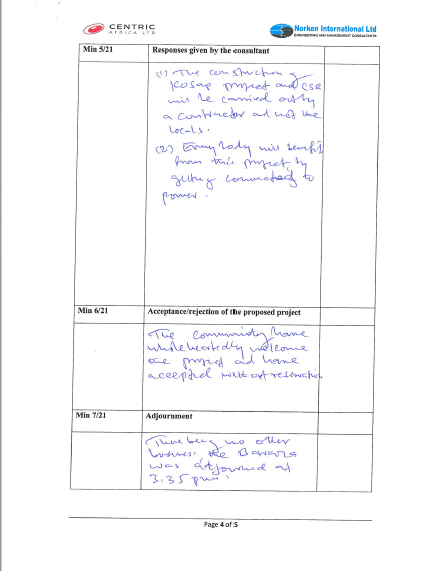 CENTRIC
AFRICA LTD
Norken International Ltd
ENGINEERING AND MANAGEMENT CONSULTANTS
Min 5/21
Responses given by the consultant
(1) The construction of
KOSAP project and CSR
will be carried out by
a contractor and not the
locals.
(2) Every body will benefit
from this project by
getting connected to
power.
Min 6/21
Acceptance/rejection of the proposed project
The community have
wholeheartedly welcome
the project and have
accepted without reservation
Min 7/21
Adjournment
There being no other
business, the Baraza
was adjourned at
3.35 pm.
Page 4 of 5